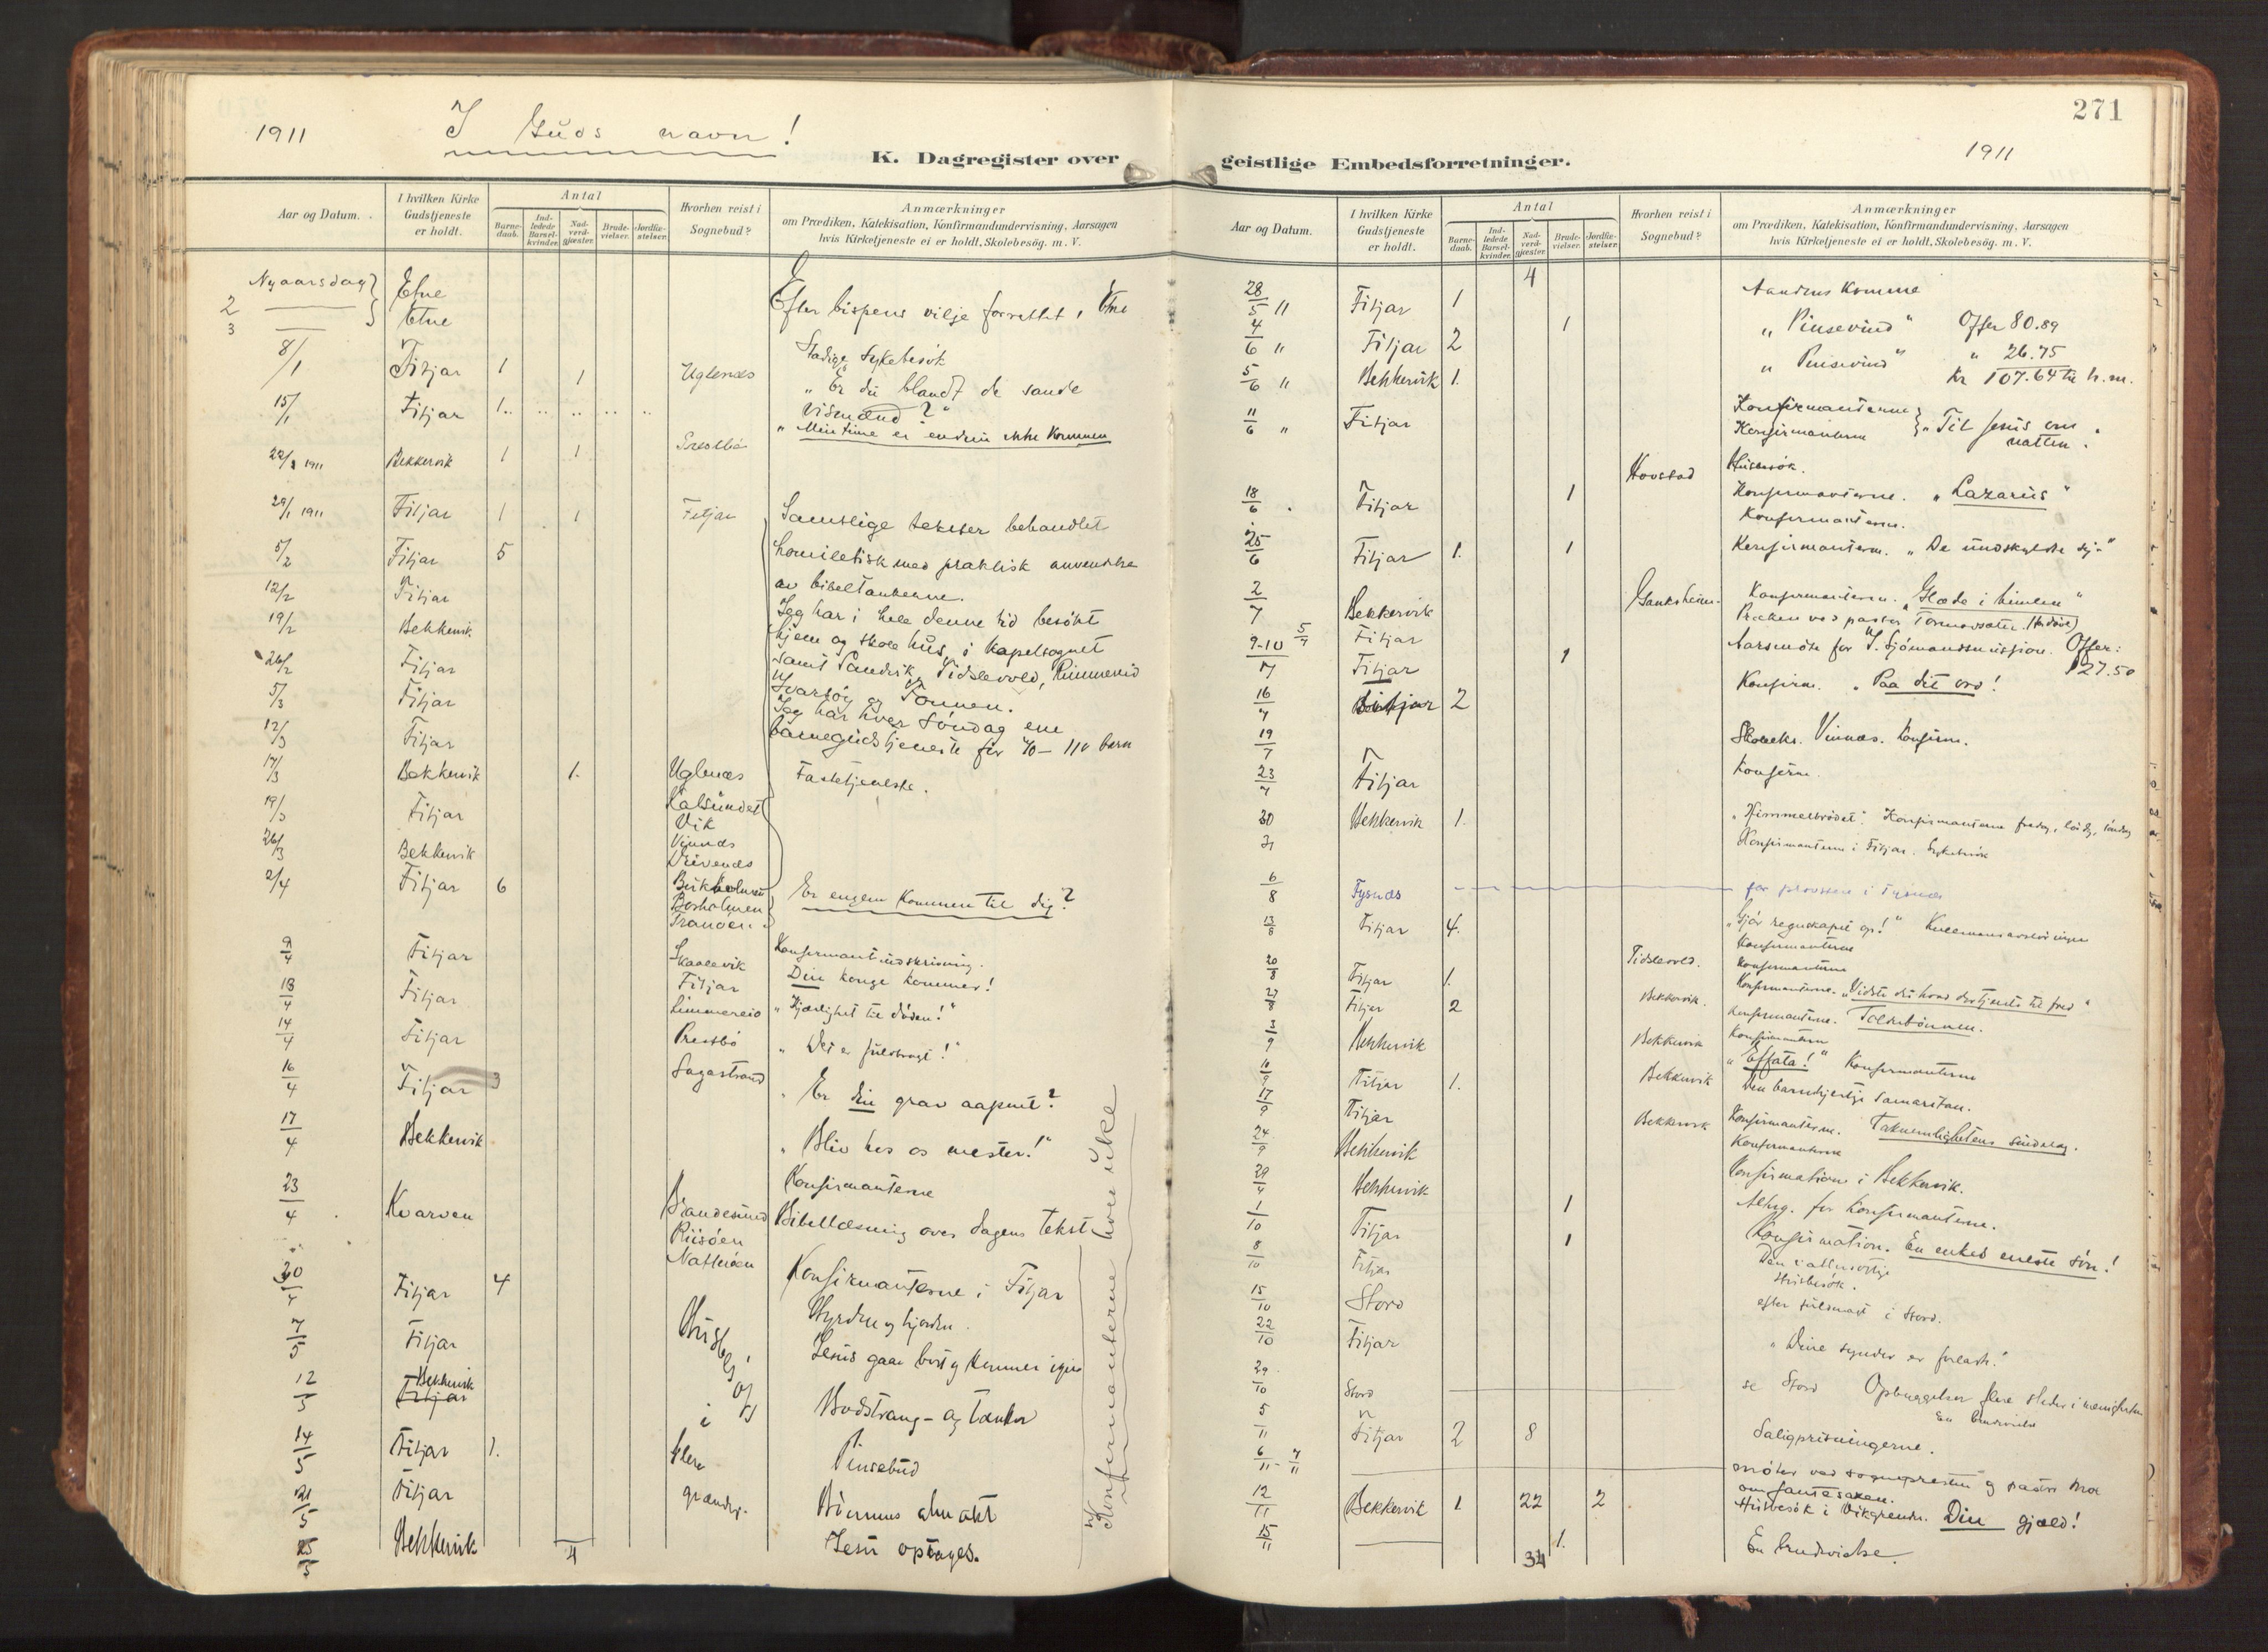 1911 I Guds navn!
K. Dagregister over
Aar og Datum.
I hvilken Kirke Gudstjeneste er holdt.
Antal
Barne-daab.
Ind-ledede Barsel-kvinder.
Nad-verd-gjæster.
Brude-vielser.
Jordfæ-stelser.
Hvorhen reist i Sognebud?
Anmærkninger
om Prædiken, Katekisation, Konfirmandundervisning, Aarsagen
hvis Kirketjeneste ei er holdt, Skolebesög. m. V.
Nyaarsdag Etne
2 Etne Efter bispens vilje forrettet i Etne
3
8/1 Fitjar 1 1 Uglenæs Stadige sykebesøk
15/1 Fitjar 1 "Er du blandt de sande
vismænd?"
"Min time er endnu ikke kommen
22/1 1911 Bekkervik 1 1
29/1 1911 Fitjar 1 1 Fitjar Samtlige tekster behandlet
5/2 Fitjar 5 homiletisk med praktisk anvendelse
12/2 Fitjar av bibeltankerne.
19/2 Bekkervik Jeg har i hele denne tid besökt
hjem og skole hus i kapelsognet
26/2 Fitjar samt Sandvik, Tidslevold, Rimmereid
5/3 Fitjar Ivarsöy og Tonnen.
12/3 Fitjar Jeg har hver söndag en
barnegudstjeneste for 70-110 barn
17/3 Bekkervik 1. Uglenæs Fastetjeneste.
19/3 Fitjar Kalsundet
Vik
26/3 Bekkervik Vinnæs
Drivenes
2/4 Fitjar 6 Birkholmen Er engelen kommen til dig?
Besholmen
Tranöen
9/4 Fitjar Skaalevik Konfirmantindskrivning.
13/4 Fitjar Fitjar Din konge kommer!
Limmereid "Kjærlighet til döden!"
14/4 Fitjar Prestbö "Det er fuldbragt!"
16/4 Fitjar 3 Sagastrand "Er din grav aapnet?
17/4 Bekkervik "Bliv hos os mester!"
Konfirmanterne
23/4 Kvarven Brandesund Bibellæsning over dagens tekst
Riisöen
30/4 Fitjar 4 Konfirmanterne i Fitjar
7/5 Fitjar Husbesög Hyrden og hjorden.
12/5 Bekkervik Jesus gaar bort og kommer igjen
14/5 Fitjar 1. i Bodstrang- og tanker
21/5 Fitjar flere Pinsebud
grænder. Bönnens almakt
25/5 Bekkervik 4 Jesu optages.
Konfirmanterne hver uke
271
1911
geistlige Embedsforretninger.
Aar og Datum.
I hvilken Kirke Gudstjeneste er holdt.
Antal
Barne-daab.
Ind-ledede Barsel-kvinder.
Nad-verd-gjæster.
Brude-vielser.
Jordfæ-stelser.
Hvorhen reist i Sognebud?
Anmærkninger
om Prædiken, Katekisation, Konfirmandundervisning, Aarsagen
hvis Kirketjeneste ei er holdt, Skolebesög. m. V.
4
28/5 " Fitjar 1 Aandens komme
4/6 " Fitjar 2 1 "Pinsevind" Offer 80.89
5/6 " Bekkervik 1. "Pinsevind" " 26.75
Kr 107.64 til h.m.
11/6 " Fitjar Konfirmanterne
Konfirmanterne "Til Jesus om natten"
Hovstad Husbesøk.
18/6 Fitjar 1 Konfirmanterne. "Lazarus"
Konfirmanterne.
25/6 Fitjar 1. 1 Konfirmanterne. "De undskyldte sig"
2/7 Bekkervik Konfirmanterne. "Glæde i himlen"
5/7 Fitjar Præken ved pastor
9-10/7 Fitjar 1 Aarsmøte for S. Sjömandsmission. Offer: 127.50
16/7 Fitjar 2 Konfirm. "Paa dit ord!
19/7 Vinnæs. Konfirm.
23/7 Fitjar Konfirm.
30/7 Bekkervik 1. "Himmelbrödet." Konfirmanterne fredag, lördag, söndag
Konfirmanterne i Fitjar. Sykebesök
6/8 Tysnæs for provsten i Tysnæs
13/8 Fitjar 4. "Gjör regnskapet op!"
Konfirmanterne
20/8 Fitjar 1. Tidslevold. Konfirmanterne
Konfirmanterne. "Vidste du hvad der tjente til fred"
27/8 Fitjar 2 Bekkervik. Konfirmanterne. Tolderbönnen.
3/9 Bekkervik Bekkervik Konfirmanterne
"Effata!" Konfirmanterne
10/9 Fitjar 1. Bekkervik Den barmhjertige samaritan.
17/9 Fitjar Bekkervik Konfirmanterne. Taknemlighetens sindelag.
24/9 Bekkervik Konfirmanterne
29/9 Bekkervik Konfirmation i Bekkervik.
1/10 Fitjar 1 Altrg. for konfirmanterne.
8/10 Fitjar 1 Konfirmation. En enkes eneste sön!
Husbesök.
15/10 Stord efter fuldmagt i Stord.
22/10 Fitjar "Dine synder er forlatt."
29/10 Stord se Stord Opbyggelser flere steder i menigheten
En brudevielse
5/11 Fitjar 2 8 Saligprisningerne.
6/11 - 7/11 möter ved sognepresten og pastor
om fantesaken.
12/11 Bekkervik 1 22 2 Husbesök i Vikgrenden. Din gjæld!
15/11 1. En brudevielse.
34